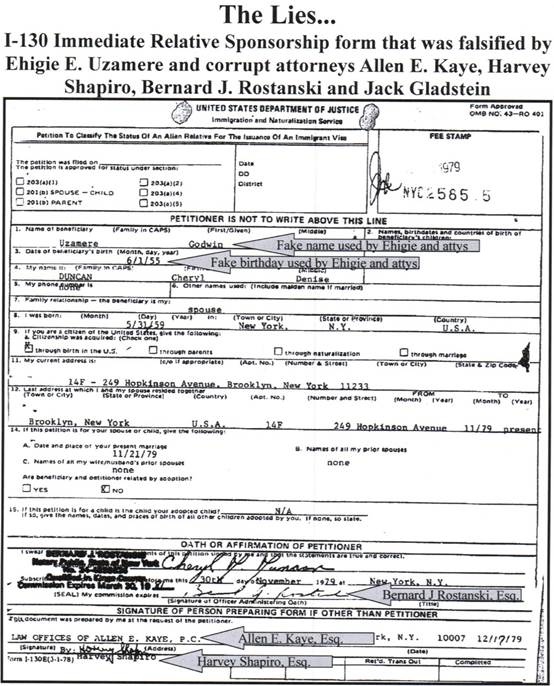 The Lies...
I-130 Immediate Relative Sponsorship form that was falsified by
Ehigie E. Uzamere and corrupt attorneys Allen E. Kaye, Harvey
Shapiro, Bernard J. Rostanski and Jack Gladstein
UNITED STATES DEPARTMENT OF JUSTICE
Immigration and Naturalization Service
Form Approved
OMB NO. 43-RO 401
Petition To Classify The Status Of An Alien Relative For The Issuance Of An Immigrant Visa
FEE STAMP
The petition was filed on
The petition is approved for status under section:
203(a)(1) 203(a)(2)
201(b) SPOUSE - CHILD 203(a)(4)
201(b) PARENT 203(a)(5)
Date
DO
District
1979
NYC 2585 5
PETITIONER IS NOT TO WRITE ABOVE THIS LINE
1. Name of beneficiary (Family in CAPS) (First/Given) (Middle)
2. Names, birthdates and countries of birth of beneficiary's children:
Uzamere Godwin
Fake name used by Ehigie and attys
3. Date of beneficiary's birth (Month, day, year)
6/1/55
Fake birthday used by Ehigie and attys
4. My name is: (Family in CAPS) (Middle)
DUNCAN Cheryl Denise
5. My phone number is
none
6. Other names used: (Include maiden name if married)
7. Family relationship - the beneficiary is my:
spouse
8. I was born: (Month) (Day) (Year) in: (Town or City) (State or Province) (Country)
5/31/59 New York, N.Y. U.S.A.
9. If you are a citizen of the United States, give the following:
a. Citizenship was acquired: (Check one)
through birth in the U.S. through parents through naturalization through marriage
11. My current address is: c/o if appropriate) (Apt. No.) (Number & Street) (Town or City) (State & Zip Code)
14F - 249 Hopkinson Avenue, Brooklyn, New York 11233
12. Last address at which I and my spouse resided together
(Town or City) (State or Province) (Country) (Apt. No.) (Number and Street)
FROM (Month) (Year)
TO (Month) (Year)
Brooklyn, New York U.S.A. 14F 249 Hopkinson Avenue 11/79 present
14. If this petition is for your spouse or child, give the following:
A. Date and place of your present marriage
11/21/79
B. Names of all my prior spouses
none
C. Names of all my wife/husband's prior spouses
none
Are beneficiary and petitioner related by adoption?
YES NO
15. If this petition is for a child is the child your adopted child? N/A
If so, give the names, dates, and places of birth of all other children adopted by you. If none, so state.
OATH OR AFFIRMATION OF PETITIONER
I swear
me and that the statements are true and correct.
BERNARD J. ROSTANSKI
Notary Public, State of New York
Qualified in Kings County
Commission Expires March 30, 19
me this 30th day of November 1979 at New York, N.Y.
(SEAL) My commission expires
(Signature of Officer Administering Oath) (Title)
Bernard J Rostanski, Esq.
SIGNATURE OF PERSON PREPARING FORM IF OTHER THAN PETITIONER
document was prepared by me at the request of the petitioner.
LAW OFFICES OF ALLEN E. KAYE, P.C.
Allen E. Kaye, Esq.
rk, N.Y. 10007 12/17/79
(Signature) By: (Address) (Date)
Harvey Shapiro
Harvey Shapiro, Esq.
Form I-130E
Ret'd. Trans Out Completed